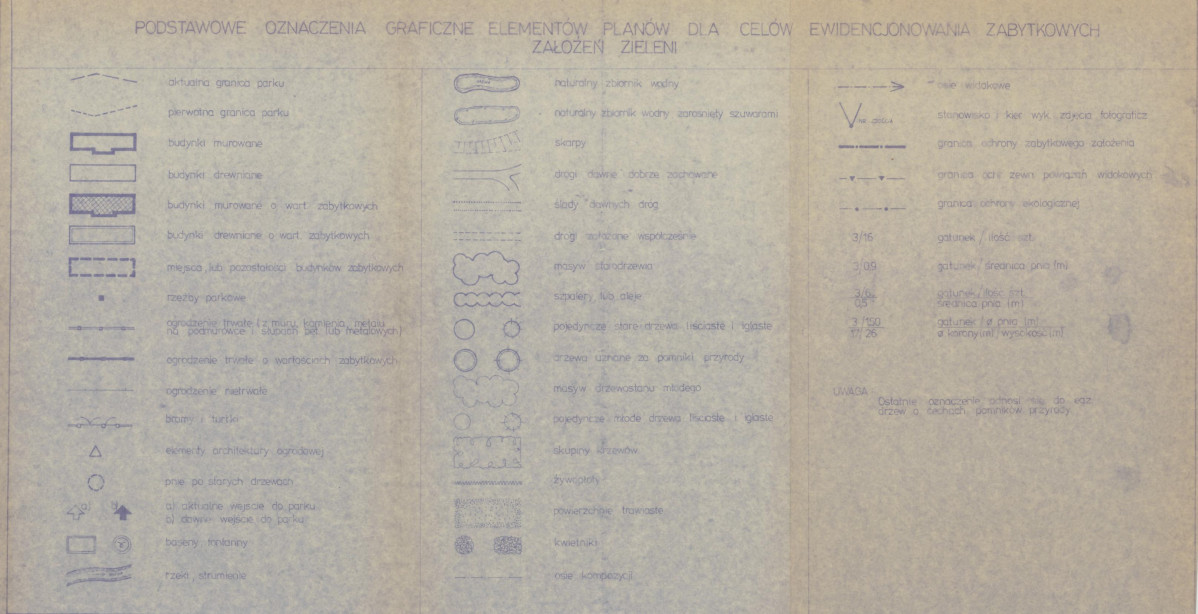 PODSTAWOWE OZNACZENIA GRAFICZNE ELEMENTÓW PLANÓW DLA CELÓW EWIDENCJONOWANIA ZABYTKOWYCH
ZAŁOŻEŃ ZIELENI
aktualna granica parku
pierwotna granica parku
budynki murowane
budynki drewniane
budynki murowane o wart. zabytkowych
budynki drewniane o wart. zabytkowych
miejsca lub pozostałości budynków zabytkowych
rzeźby parkowe
ogrodzenie trwałe (z muru, kamienia, metalu
na podmurówce i słupach bet. lub metalowych)
ogrodzenie trwałe o wartościach zabytkowych
ogrodzenie nietrwałe
bramy i furtki
elementy architektury ogrodowej
pnie po starych drzewach
a) b)
a) aktualne wejście do parku
b) dawne wejście do parku
baseny fontanny
rzeki, strumienie
naturalny zbiornik wodny
naturalny zbiornik wodny zarośnięty szuwarami
skarpy
drogi dawne dobrze zachowane
ślady dawnych dróg
drogi założone współcześnie
masyw starodrzewia
szpalery lub aleje
pojedyncze stare drzewa liściaste i iglaste
drzewa uznane za pomniki przyrody
masyw drzewostanu młodego
pojedyncze młode drzewa liściaste i iglaste
skupiny krzewów
żywopłoty
powierzchnie trawiaste
kwietniki
osie kompozycji
osie widokowe
stanowisko i kier. wyk. zdjęcia fotograficz.
granica ochrony zabytkowego założenia
granica ochr. zewn. powiązań widokowych
granica ochrony ekologicznej
3/16 gatunek / ilość szt.
3/0,9 gatunek / średnica pnia [m]
gatunek/ilość szt.
0,5 średnica pnia [m]
3/150 gatunek / ø pnia [m]
ø korony[m]/wysokość [m]
UWAGA
Ostatnie oznaczenie odnosi się do egz.
drzew o cechach pomników przyrody